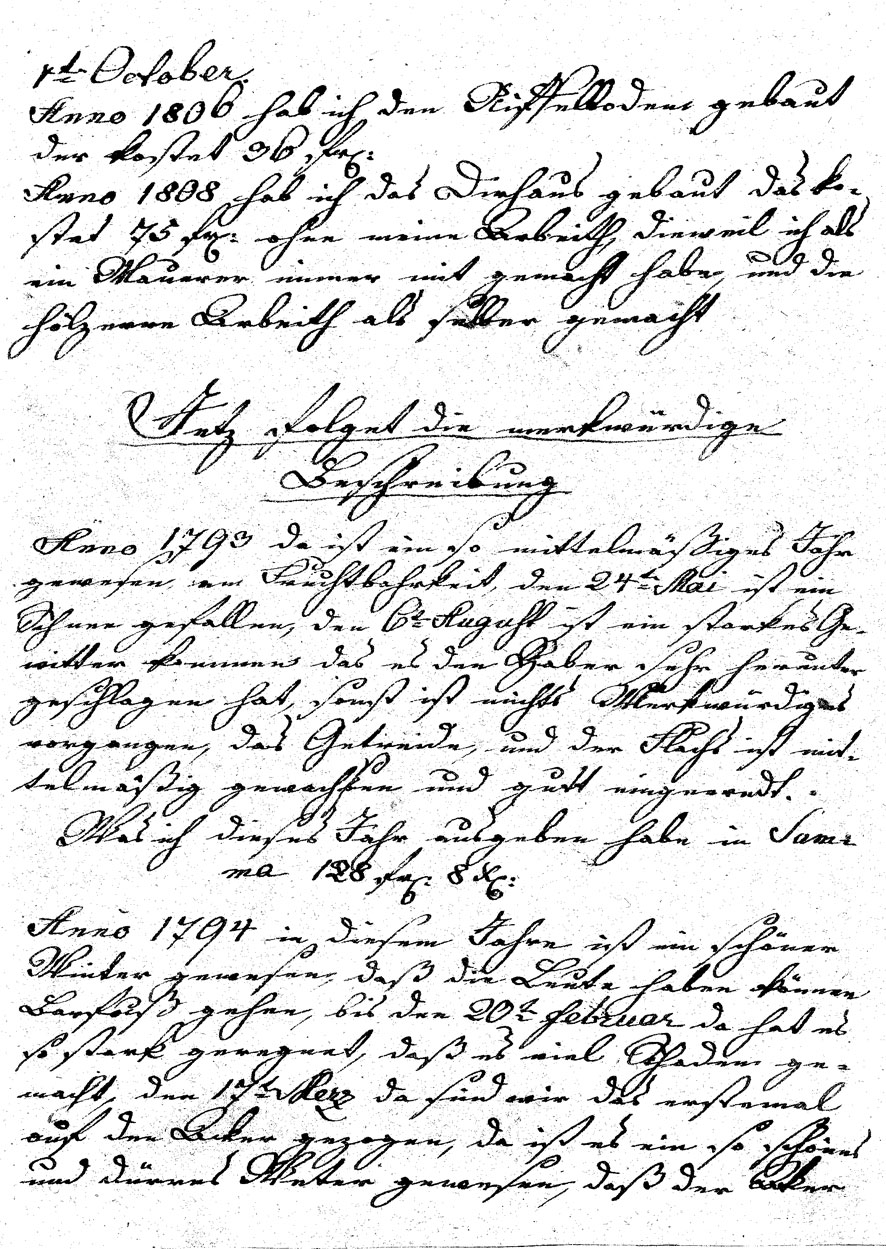 1t October.
Anno 1806 hab ich den Riffelboden gebaut
der kostet 36 fx:
Anno 1808 hab ich das Dirhaus gebaut das ko-
stet 75 fx: ohne meine Arbeith, dieweil ich als
ein Mauerer immer mit gemacht habe, und die
hölzerne Arbeith als selber gemacht
Jetz folget die merkwürdige
Beschreibung
Anno 1793 da ist ein so mittelmäßiges Jahr
gewesen, an Fruchtbahrkeit, den 24tn Mai ist ein
Schnee gefallen, den 6tn August ist ein starkes Ge-
witter kommen das es den Haber sehr herunter
geschlagen hat, sonst ist nichts Merkwürdiges
vorgangen, das Getreide, und der Flachs ist mit-
telmäßig gewachsen und gutt eingeerndt.
Was ich dieses Jahr ausgeben habe in Sum-
ma 128 fx: 8 x:
Anno 1794 in diesem Jahre ist ein schöner
Winter gewesen, daß die Leute haben können
Barfuß gehen, bis den 20tn Februar da hat es
so stark geregnet, daß es viel Schaden ge-
macht, den 17tn Merz da sind wir das erstemal
auf den Acker gezogen, da ist es ein so schönes
und dürres Wetter gewesen, daß der Acker